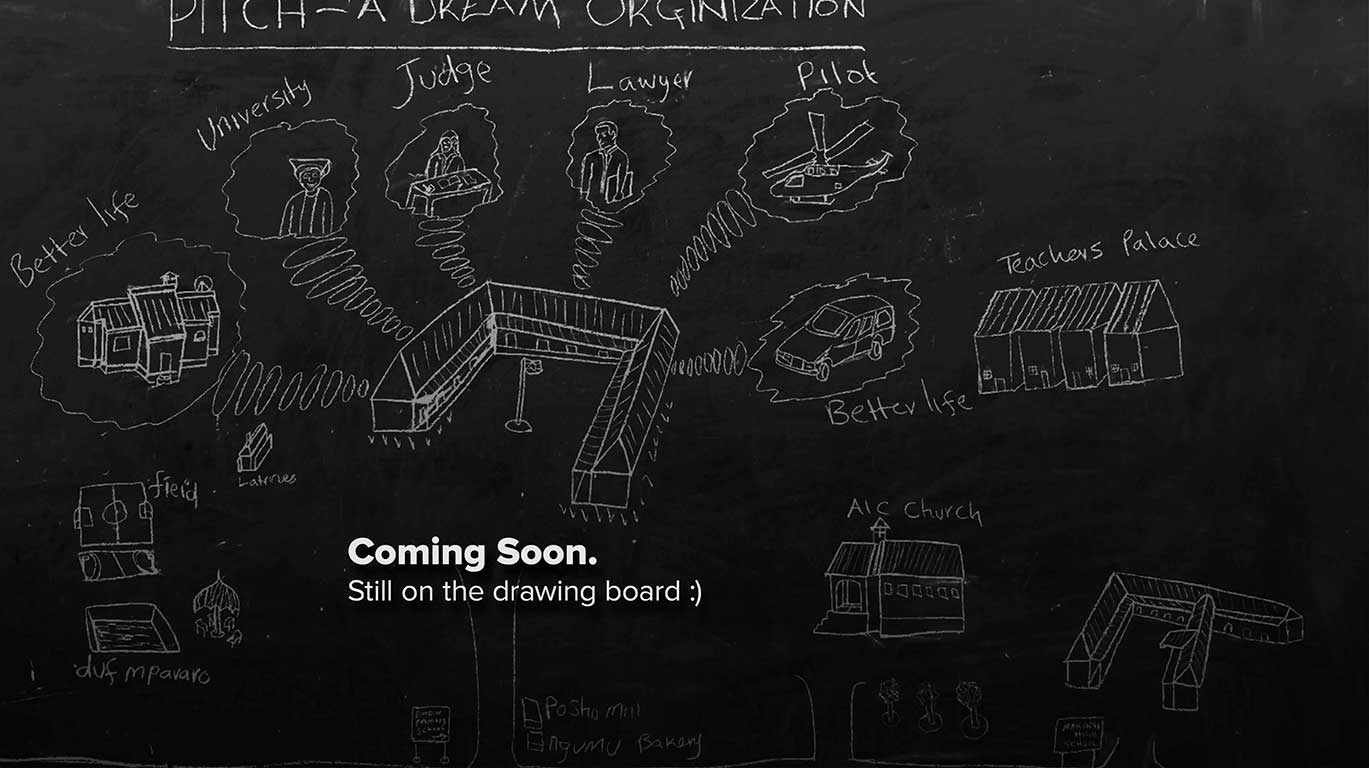 PITCH – A DREAM ORGINIZATION
Judge
Lawyer
Pilot
University
Better life
Teachers Palace
Better life
Latrines
field
AIC Church
Coming Soon.
Still on the drawing board :)
Primary
School
Posho Mill
Bakery
High
School